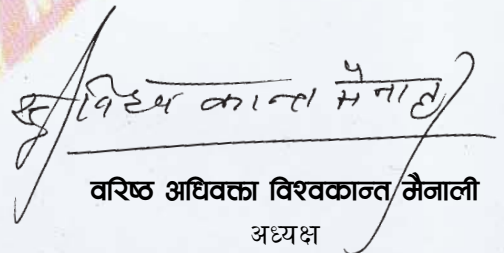 विश्व कान्त मैनाली
वरिष्ठ अधिवक्ता विश्वकान्त मैनाली
अध्यक्ष